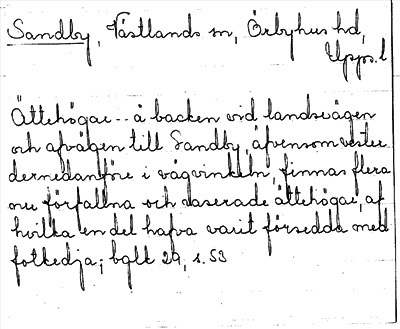 Sandby, Västlands sn, Örbyhus hd,
Upps. l
Ättehögar -- å backen vid landsvägen
och afvägen till Sandby, äfvensom vester
dernedanföre i vägvinkeln, finnas flera
nu förfallna och raserade ättehögar, af
hvilka en del hafva varit försedda med
fotkedja; bglk 29, s. 53